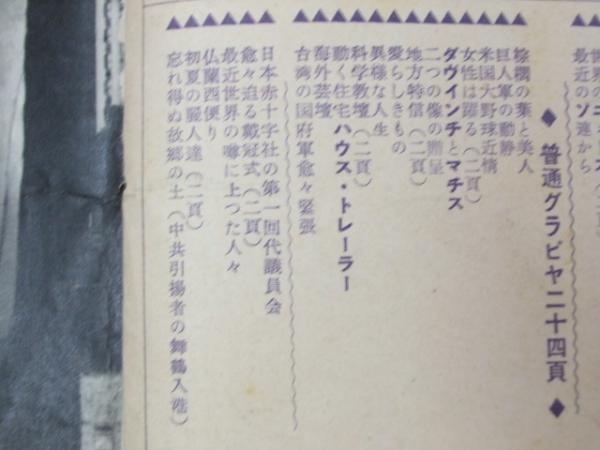 最近のソ連から
◆ 普通グラビヤ二十四頁 ◆
棕櫚の葉と美人
巨人軍の動静
米国大野球近情
女性は躍る(二頁)
ダヴインチとマチス
二つの像の贈呈
地方特信(二頁)
愛らしきもの
異様な人生
科学教壇(二頁)
動く住宅ハウス・トレーラー
海外芸壇
台湾の国府軍愈々緊張
日本赤十字社の第一回代議員会
愈々迫る戴冠式(二頁)
最近世界の噂に上つた人々
仏蘭西便り
初夏の麗人達(二頁)
忘れ得ぬ故郷の土(中共引揚者の舞鶴入港)